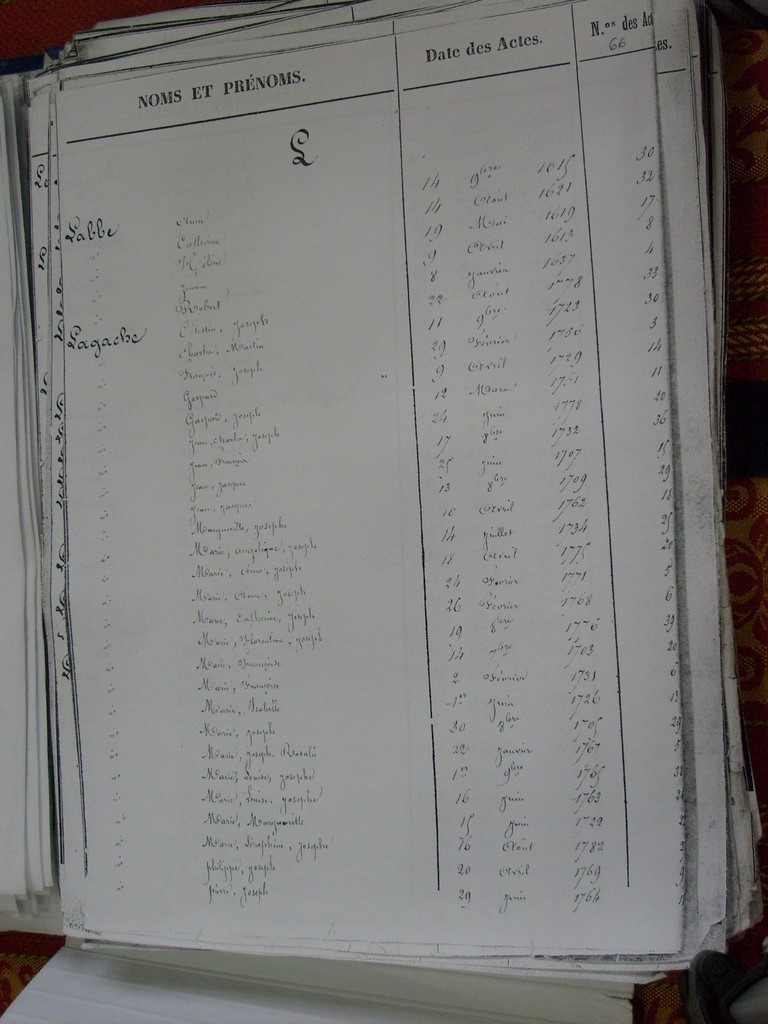 NOMS ET PRÉNOMS. Date des Actes. N.os des Actes.
66
L
Labbe Anne 14 9bre 1615 30
" Catherine 14 Août 1621 32
" Hélène 19 Mai 1619 17
" Jeanne 9 Avril 1613 8
" Robert 8 janvier 1637 4
Lagache Célestin, Joseph 22 Août 1778 33
" Charles, Martin 11 9bre 1723 30
" François, Joseph 29 Février 1756 3
" Gaspard 9 Avril 1729 14
" Gaspard, joseph 12 Mars 1751 11
" Jean, Charles, Joseph 24 juin 1778 20
" Jean, François 17 8bre 1732 36
" Jean, jacques 25 juin 1707 15
" Jean, jacques 13 8bre 1709 29
" Marguerite, josephe 10 Avril 1762 18
" Marie, angélique, joseph 14 juillet 1734 25
" Marie, Anne, joseph 18 Avril 1775 20
" Marie, Anne, joseph 24 Février 1771 5
" Marie, Catherine, joseph 26 Février 1768 6
" Marie, Florentine, joseph 19 8bre 1776 39
" Marie, Françoise 14 7bre 1703 20
" Marie, Françoise 2 Février 1731 6
" Marie, Isabelle 1er juin 1726 13
" Marie, joseph 30 8bre 1705 29
" Marie, joseph, Rosalie 22 janvier 1767 5
" Marie, Louise, josephe 1er 9bre 1765 38
" Marie, Louise, josephe 16 juin 1763
" Marie, Marguerite 15 juin 1722
" Marie, Séraphine, josephe 16 Août 1782
" philippe, joseph 20 Avril 1769 9
" pierre, joseph 29 juin 1764